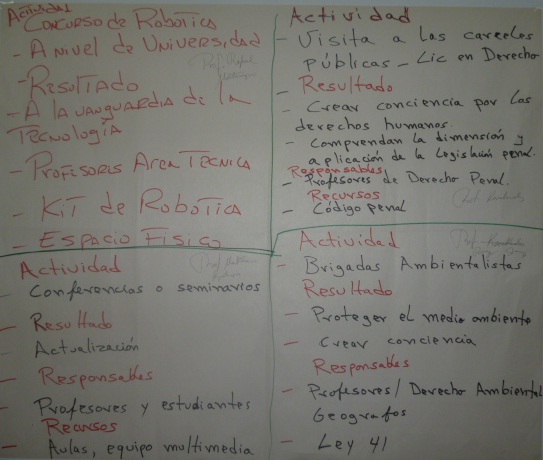 Actividad
Concurso de Robótica
- A nivel de Universidad
- Resultado
- A la vanguardia de la
Tecnología
- Profesoris Area Tecnica
- Kit de Robotica
- Espacio Fisico
Actividad
- Visita a las carceles
públicas - Lic en Derecho
- Resultado
- Crear conciencia por los
derechos humanos.
- Comprendan la dimensión y
aplicación de la Legislación penal.
Responsables
- Profesores de Derecho Penal.
Recursos
- Código penal
Actividad
- Conferencias o seminarios
- Resultado
- Actualización
- Responsables
- Profesores y estudiantes
- Recursos
- Aulas, equipo multimedia
Actividad
- Brigadas Ambientalistas
Resultado
- Proteger el medio ambiente
- Crear conciencia
Responsables
- Profesores/ Derecho Ambiental
Geografos
- Ley 41